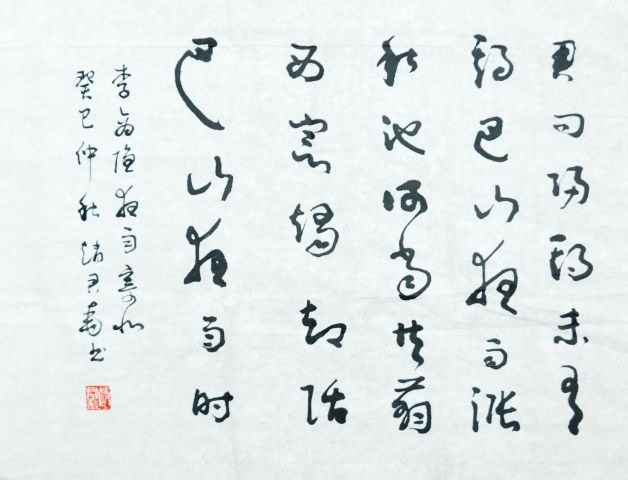 君问归期未有
期巴山夜雨涨
秋池何当共剪
西窗烛却话
巴山夜雨时
李商隐夜雨寄北
癸巳仲秋君书